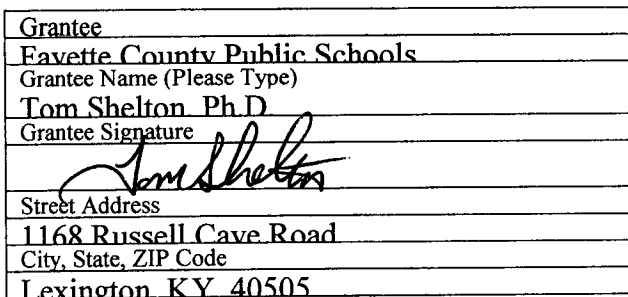 Grantee
Fayette County Public Schools
Grantee Name (Please Type)
Tom Shelton, Ph.D.
Grantee Signature
Tom Shelton
Street Address
1168 Russell Cave Road
City, State, ZIP Code
Lexington, KY 40505